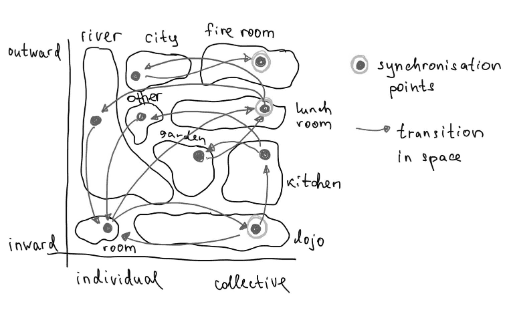 river city fire room
outward
synchronisation
points
other
lunch
room
garden
transition
in space
kitchen
inward
room
dojo
individual collective